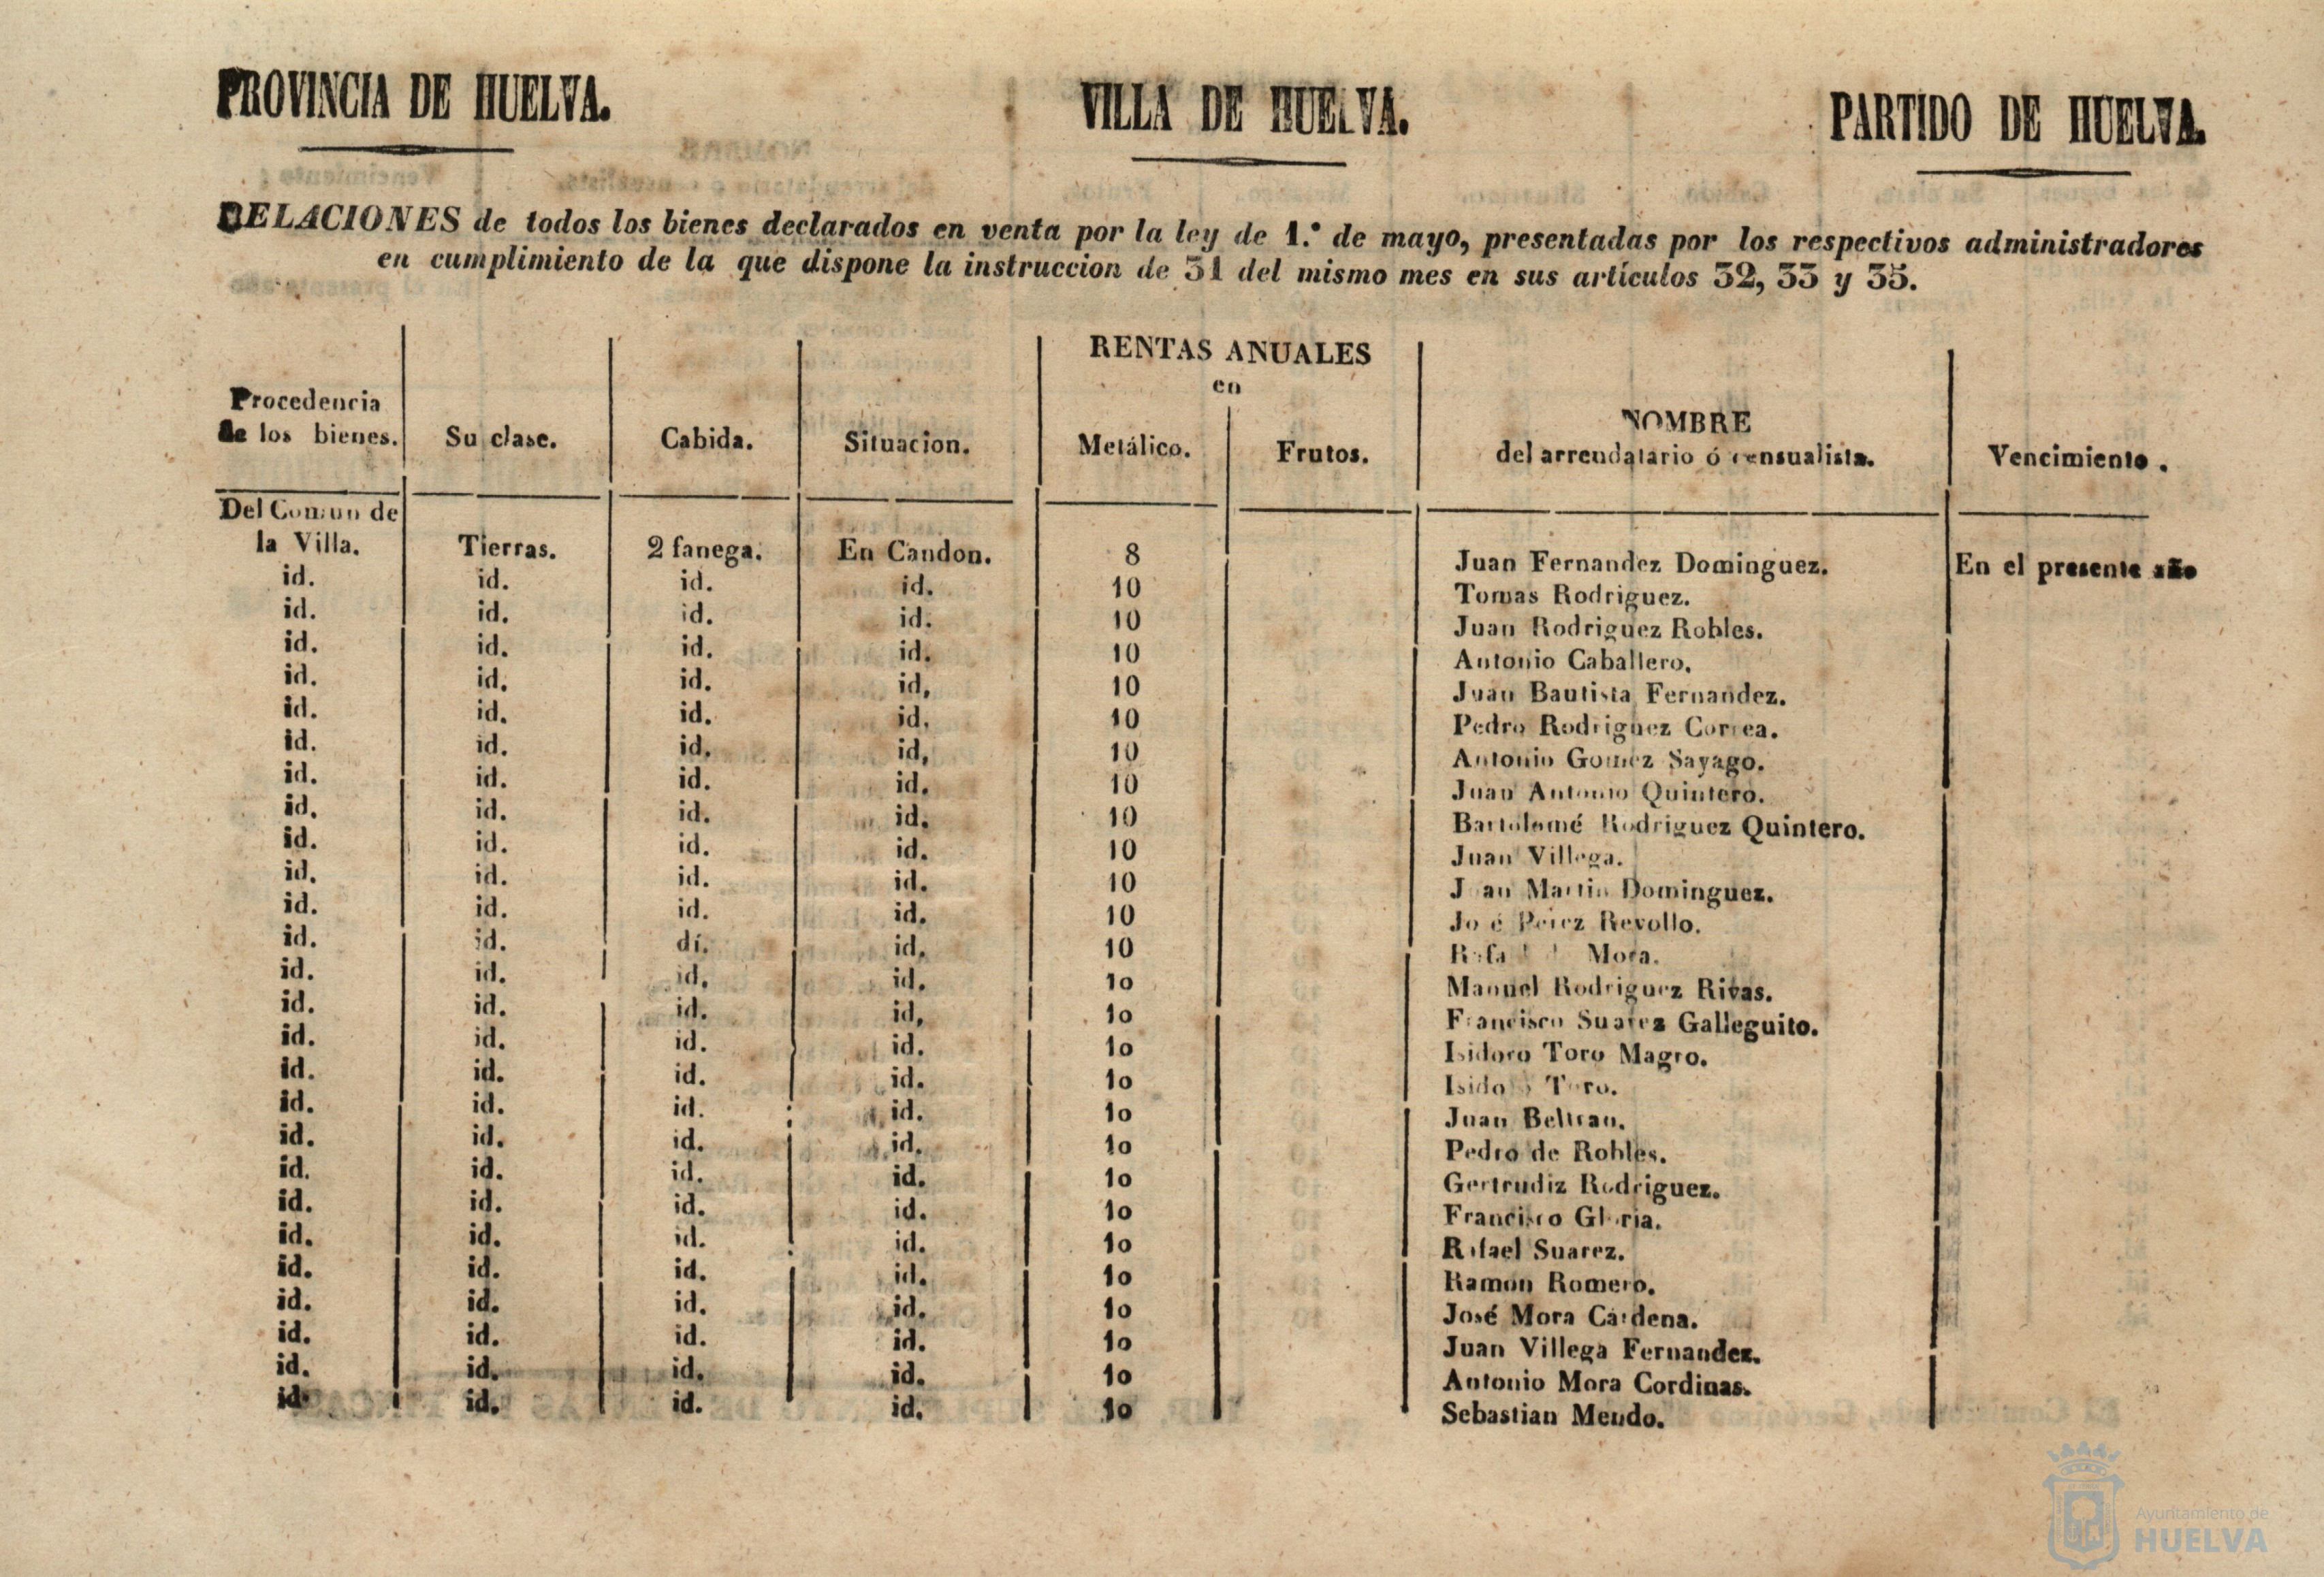 PROVINCIA DE HUELVA. VILLA DE HUELVA. PARTIDO DE HUELVA.
RELACIONES de todos los bienes declarados en venta por la ley de 1.º de mayo, presentadas por los respectivos administradores
en cumplimiento de la que dispone la instruccion de 31 del mismo mes en sus artículos 32, 33 y 35.
RENTAS ANUALES
en
Procedencia
de los bienes. Su clase. Cabida. Situacion. Metálico. Frutos. NOMBRE
del arrendatario ó censualista. Vencimiento.
Del Comun de
la Villa. Tierras. 2 fanega. En Candon. 8 Juan Fernandez Dominguez. En el presente año
id. id. id. id. 10 Tomas Rodriguez.
id. id. id. id. 10 Juan Rodriguez Robles.
id. id. id. id. 10 Antonio Caballero.
id. id. id. id, 10 Juan Bautista Fernandez.
id. id. id. id. 10 Pedro Rodriguez Correa.
id. id. id. id, 10 Antonio Gomez Sayago.
id. id. id. id. 10 Juan Antonio Quintero.
id. id. id. id. 10 Bartolomé Rodriguez Quintero.
id. id. id. id. 10 Juan Villega.
id. id. id. id. 10 Juan Martin Dominguez.
id. id. id. id. 10 José Perez Revollo.
id. id. dí. id, 10 Rafael Mora.
id. id. id. id. 10 Manuel Rodriguez Rivas.
id. id. id. id, 10 Francisco Suarez Galleguito.
id. id. id. id. 10 Isidoro Toro Magro.
id. id. id. id. 10 Isidoro Toro.
id. id. id. id. 10 Juan Beltran.
id. id. id. id. 10 Pedro de Robles.
id. id. id. id. 10 Gertrudiz Rodriguez.
id. id. id. id. 10 Francisco Gloria.
id. id. id. id. 10 Rafael Suarez.
id. id. id. id. 10 Ramon Romero.
id. id. id. id. 10 José Mora Cardena.
id. id. id. id. 10 Juan Villega Fernandez.
id. id. id. id. 10 Antonio Mora Cordinas.
id. id. id. id. 10 Sebastian Mendo.
Ayuntamiento de
HUELVA